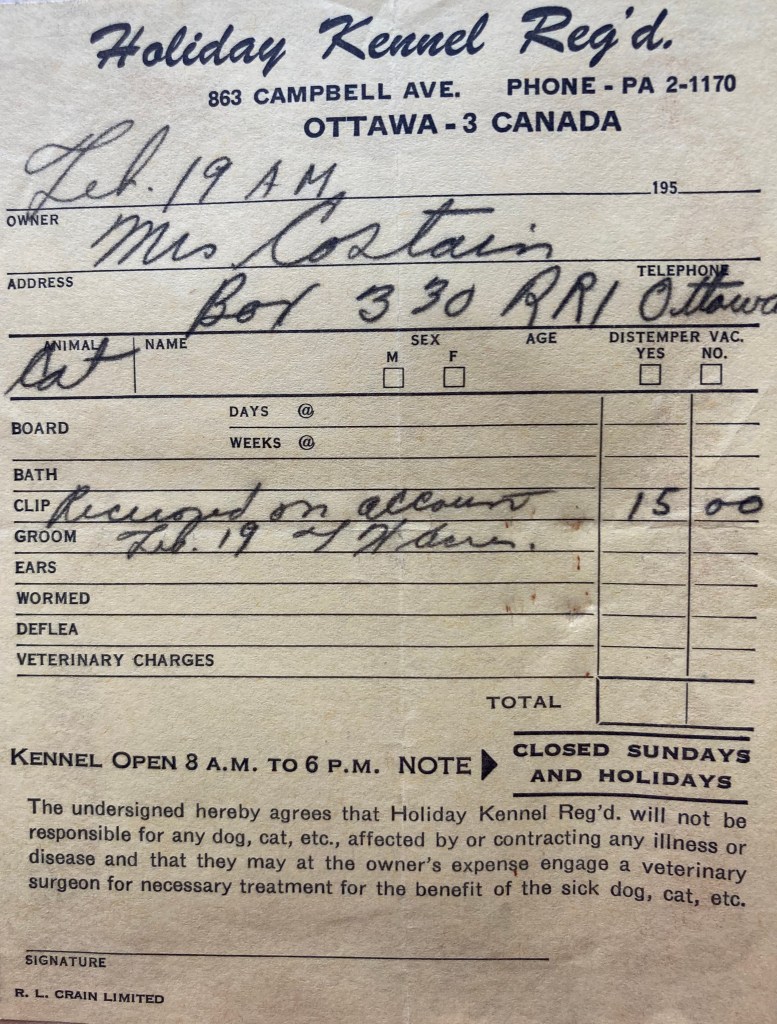 Holiday Kennel Reg'd.
863 CAMPBELL AVE. PHONE - PA 2-1170
OTTAWA - 3 CANADA
Feb. 19 AM 195
OWNER Mrs Costain
ADDRESS Box 330 RR1 TELEPHONE Ottawa
ANIMAL Cat NAME SEX M F AGE DISTEMPER VAC. YES NO.
BOARD DAYS @
WEEKS @
BATH
CLIP Received on account 15 00
GROOM Feb. 19
EARS
WORMED
DEFLEA
VETERINARY CHARGES
TOTAL
KENNEL OPEN 8 A.M. TO 6 P.M. NOTE CLOSED SUNDAYS
AND HOLIDAYS
The undersigned hereby agrees that Holiday Kennel Reg'd. will not be
responsible for any dog, cat, etc., affected by or contracting any illness or
disease and that they may at the owner's expense engage a veterinary
surgeon for necessary treatment for the benefit of the sick dog, cat, etc.
SIGNATURE
R. L. CRAIN LIMITED